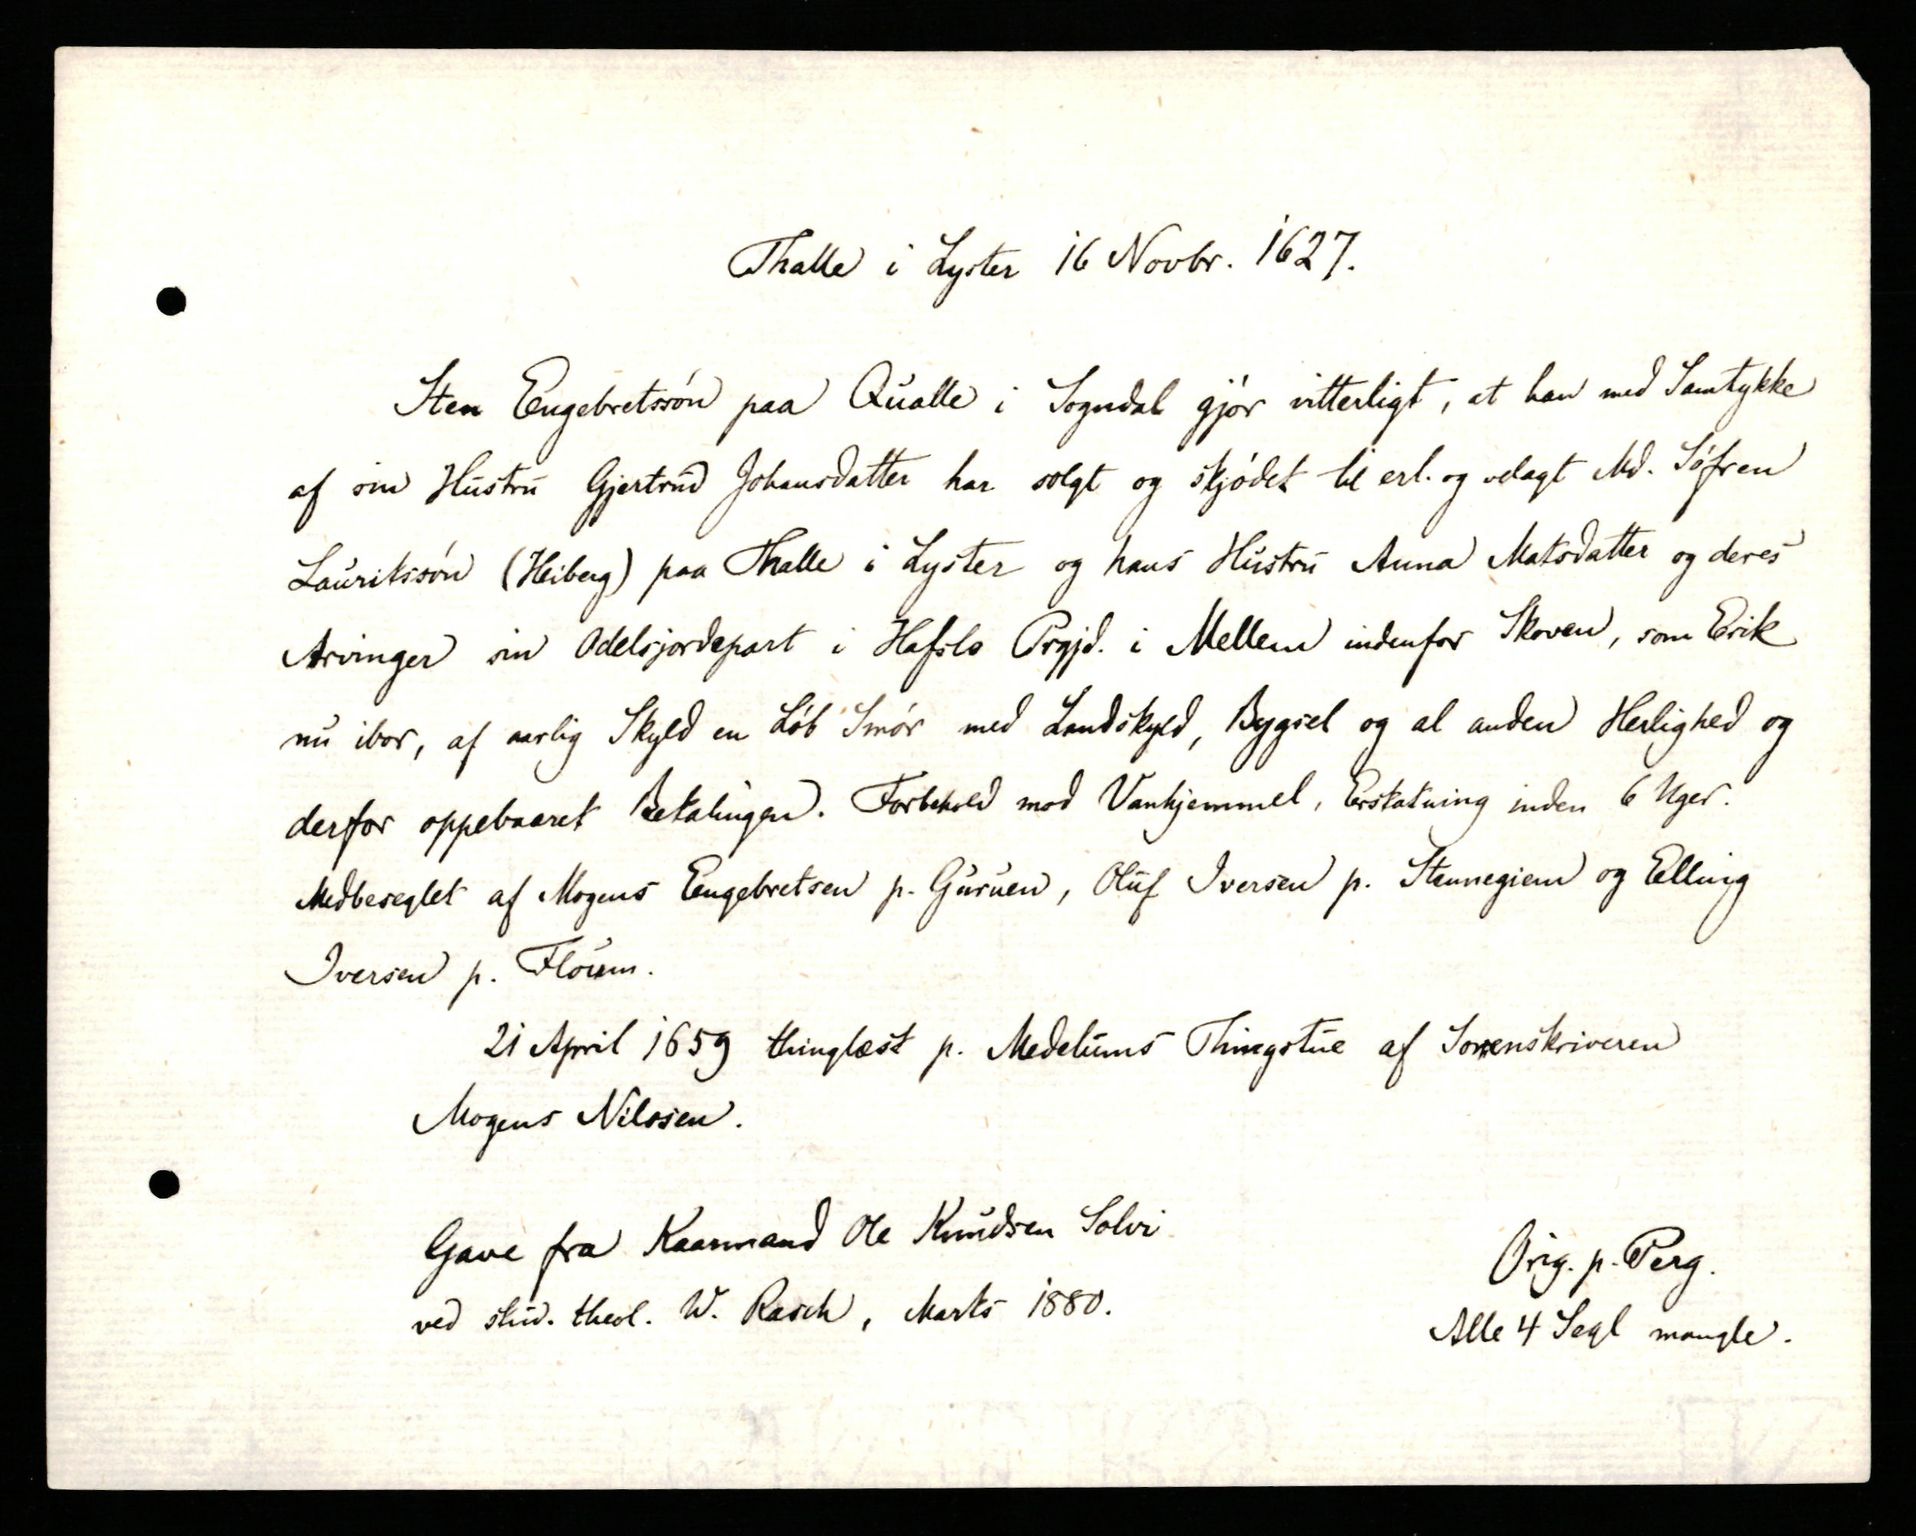 Thalle i Lyster 16 Novbr. 1627.
Sten Engebretssön paa Qualle i Sogndal gjör vitterligt, at han med Samtykke
af sin Hustru Gjertrud Johansdatter har solgt og skjödet til erl. og velagt Md. Söfren
Lauritssön (Heiberg) paa Thalle i Lyster og hans Hustru Anna Matsdatter og deres
Arvinger sin Odelsjordepart i Hafslo Prgjd. i Mellem indenfor Skoven, som Erik
nu ibor, af aarlig Skyld en Löb Smör med Landskyld, Bygsel og al anden Herlighed og
derfor oppebaaret Betalingen. Forbehold mod Vanhjemmel, Erstatning inden 6 Uger.
Medbeseglet af Mogens Engebretsen p. Guruen, Oluf Iversen p. Stennegiem og Elling
Iversen p. Floum.
21 April 1659 thinglæst p. Medelums Thingstue af Sorenskriveren
Mogens Nilssen.
Gave fra Kaarmand Ole Knudsen Solvi
ved stud. theol. W. Rasch, Marts 1880.
Orig. p. Perg.
Alle 4 Segl mangle.